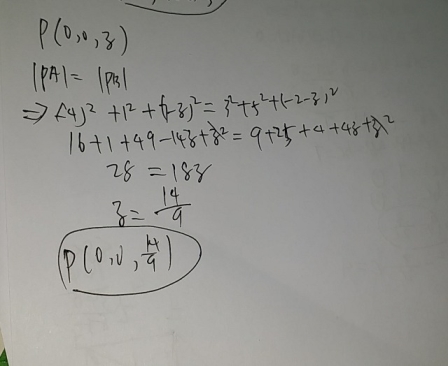 P(0,0,z)
|PA| = |PB|
⇒ (-4)² + 1² + (7-z)² = 3² + 5² + (-2-z)²
16 + 1 + 49 - 14z + z² = 9 + 25 + 4 + 4z + z²
28 = 18z
z = 14/9
P(0,0,14/9)